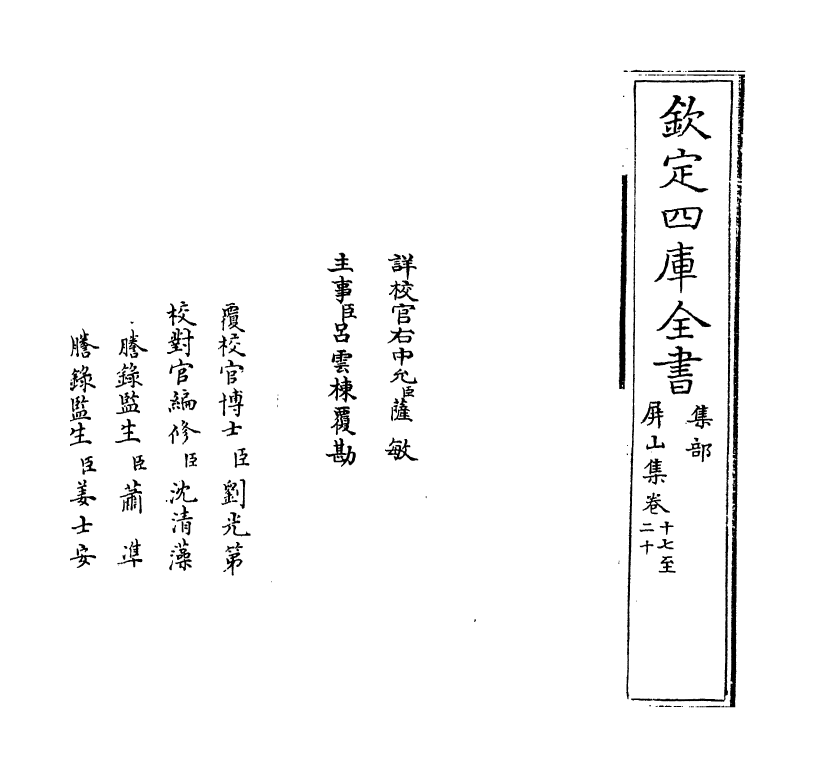 欽定四庫全書
集部
屏山集卷十七至二十
詳校官右中允臣薩敏
主事臣呂雲棟覆勘
覆校官博士臣劉光第
校對官編修臣沈清藻
謄錄監生臣蕭準
謄錄監生臣姜士安